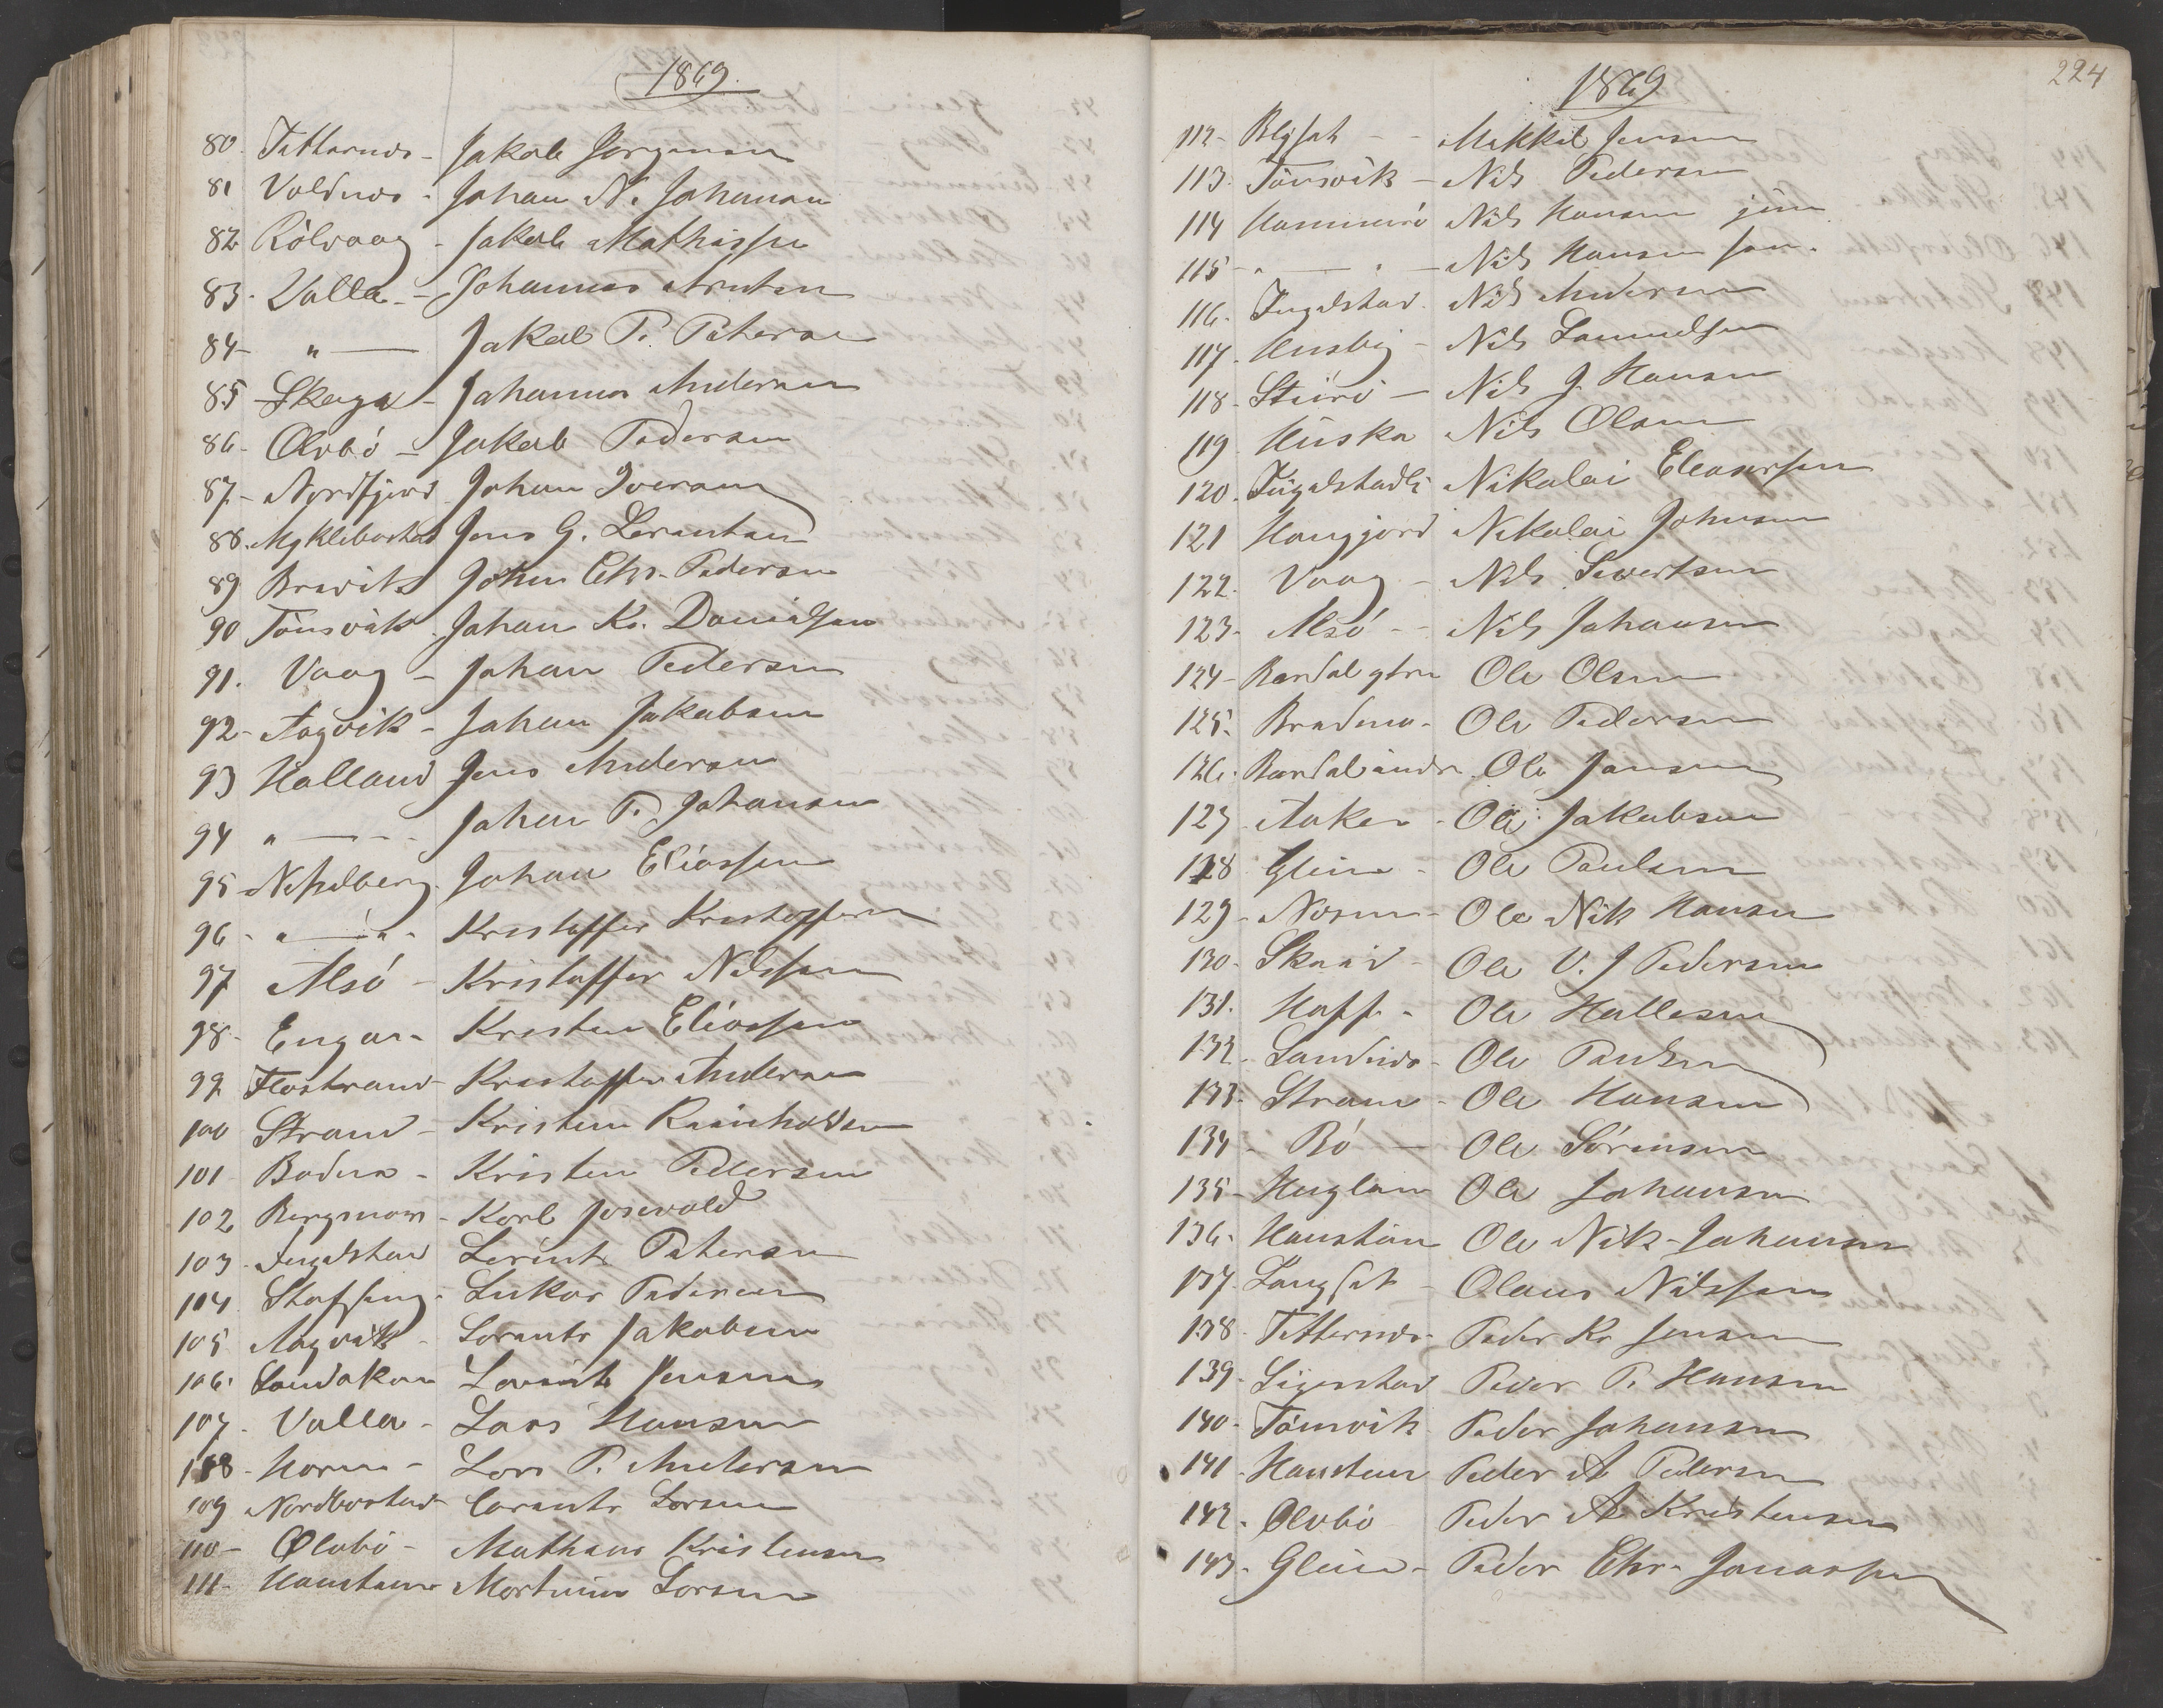 1869.
80. Titternes - Jakob Jörgensen
81 Voldnes - Johan N. Johansen
82 Rölvaag - Jakob Mathissen
83. Valla - Johannes Arntsen
84 - " — Jakob P. Petersen
85 Skaga - Johannes Andersen
86 - Olvbö - Jakob Pedersen
87 - Nordfjord Johan Iversen
88. Myklebostad Jens G. Lorentsen
89 Bravik Johan Chr. Pedersen
90 Tönsvik Johan K. Danielsen
91. Vaag - Johan Pedersen
92 - Aagvik - Johan Jakobsen
93 Halland Jens Andersen
94 " — Johan P. Johansen
95 - Nifselberg. Johan Eliassen
96 - " — " - Kristoffer Kristoffersen
97 Alsö - Kristoffer Nilssen
98 - Engan - Kristen Eliassen
99 Flostrand - Kristoffer Andersen
100 Strand - Kristen Reinholdsen
101 - Bodern - Kristen Pedersen
102 Bergsmoen - Karl Josevold
103 - Ingelstad Lorints Petersen
104 Stafseng - Lukas Pedersen
105 Aagvik - Lorents Jakobsen
106. Sandaker Lorents Jensen
107 - Valla - Lars Hansen
108 - Horne - Lars P. Andersen
109 Nordbostad - Lorents Larsen
110 - Olvbö - Mathias Kristensen
111 - Haustene Mortinus Larsen
224
1869
112 - Blysat - - Mikkel Jensen
113. Tönsvik - Nils Pedersen
114 Hammerö Nils Hansen jun
115 - " — " — Nils Hansen sen.
116. Ingelstad. Nils Andersen
117. Husby - Nils Samuelsen
118 - Stuvi - Nils J. Hansen
119 Huska Nils Olsen
120. Ingelstadli Nikolai Eleasersen
121 Haugjord Nikolai Johnsen
122. Vaag - Nils Sivertsen
123 - Alsö - - Nils Johansen
124 - Bardal ytre Ole Olsen
125. Bradmo - Ole Pedersen
126. Bardal indre Ole Jansen
127 - Aaker - Ole Jakobsen
128 Glein - Ole Paulsen
129 - Nosen - Ole Nik Hansen
130 - Skaad - Ole V. J Pedersen
131. Haff - Ole Hallesen
132 - Sandnes - Ole Paulsen
133. Straum - Ole Hansen
134 - Bö — Ole Sörensen
135 - Huglen Ole Johansen
136 - Haustein Ole Nik - Johansen
137. Langset - Olaus Nilssen
138 - Titternes - Peder Kr Jensen
139 - Sigerstad Peder P. Hansen
140 - Tönsvik Peder Johansen
141 - Haustein Peder A Pedersen
142 - Olvbö Peder A Kristensen
143 - Glein - Peder Chr - Jonassen